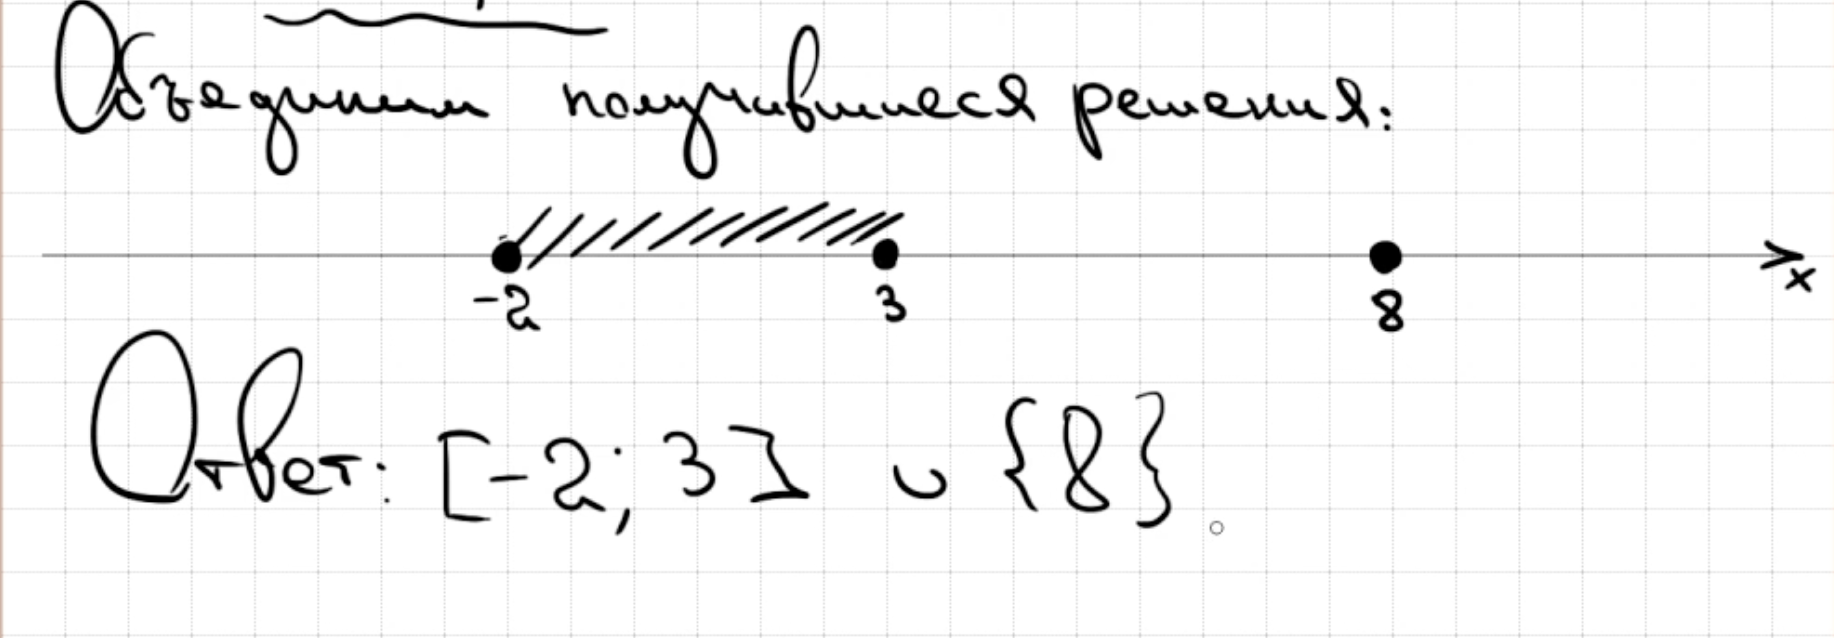 Объединим получившиеся решения:
-2 3 8 x
Ответ: [-2; 3] ∪ {8}.